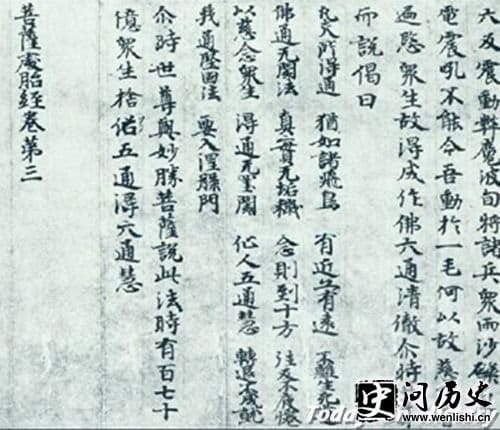 六反震動弊魔波旬將諸兵衆雨沙礫
電震吼不能令吾動於一毛何以故慈
遍愍衆生故得成作佛六通清徹尒時
而說偈曰
凡夫所得通 猶如諸飛鳥 有近亦有遠 不離生死
佛通无閡法 真實无垢穢 念則到十方 往反不疲惓
以慈念衆生 得通无罣閡 仙人五通慧 轉退不成就
我通堅固法 要入涅槃門
尒時世尊與妙勝菩薩說此法時有百七十
億衆生捨俗五通得六通慧
菩薩處胎經卷第三
问历史
www.wenlishi.cn